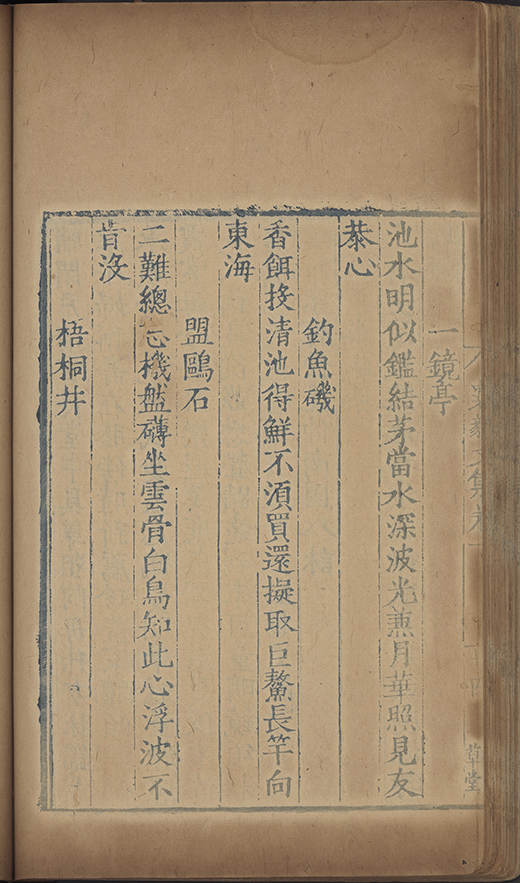 一鏡亭
池水明似鑑結茅當水深波光蕉月華照見友
恭心
釣魚磯
香餌投清池得鮮不湏買還擬取巨鰲長竿向
東海
盟鷗石
二難總忘機盤礴坐雲骨白鳥知此心浮波不
肯沒
梧桐井
草堂